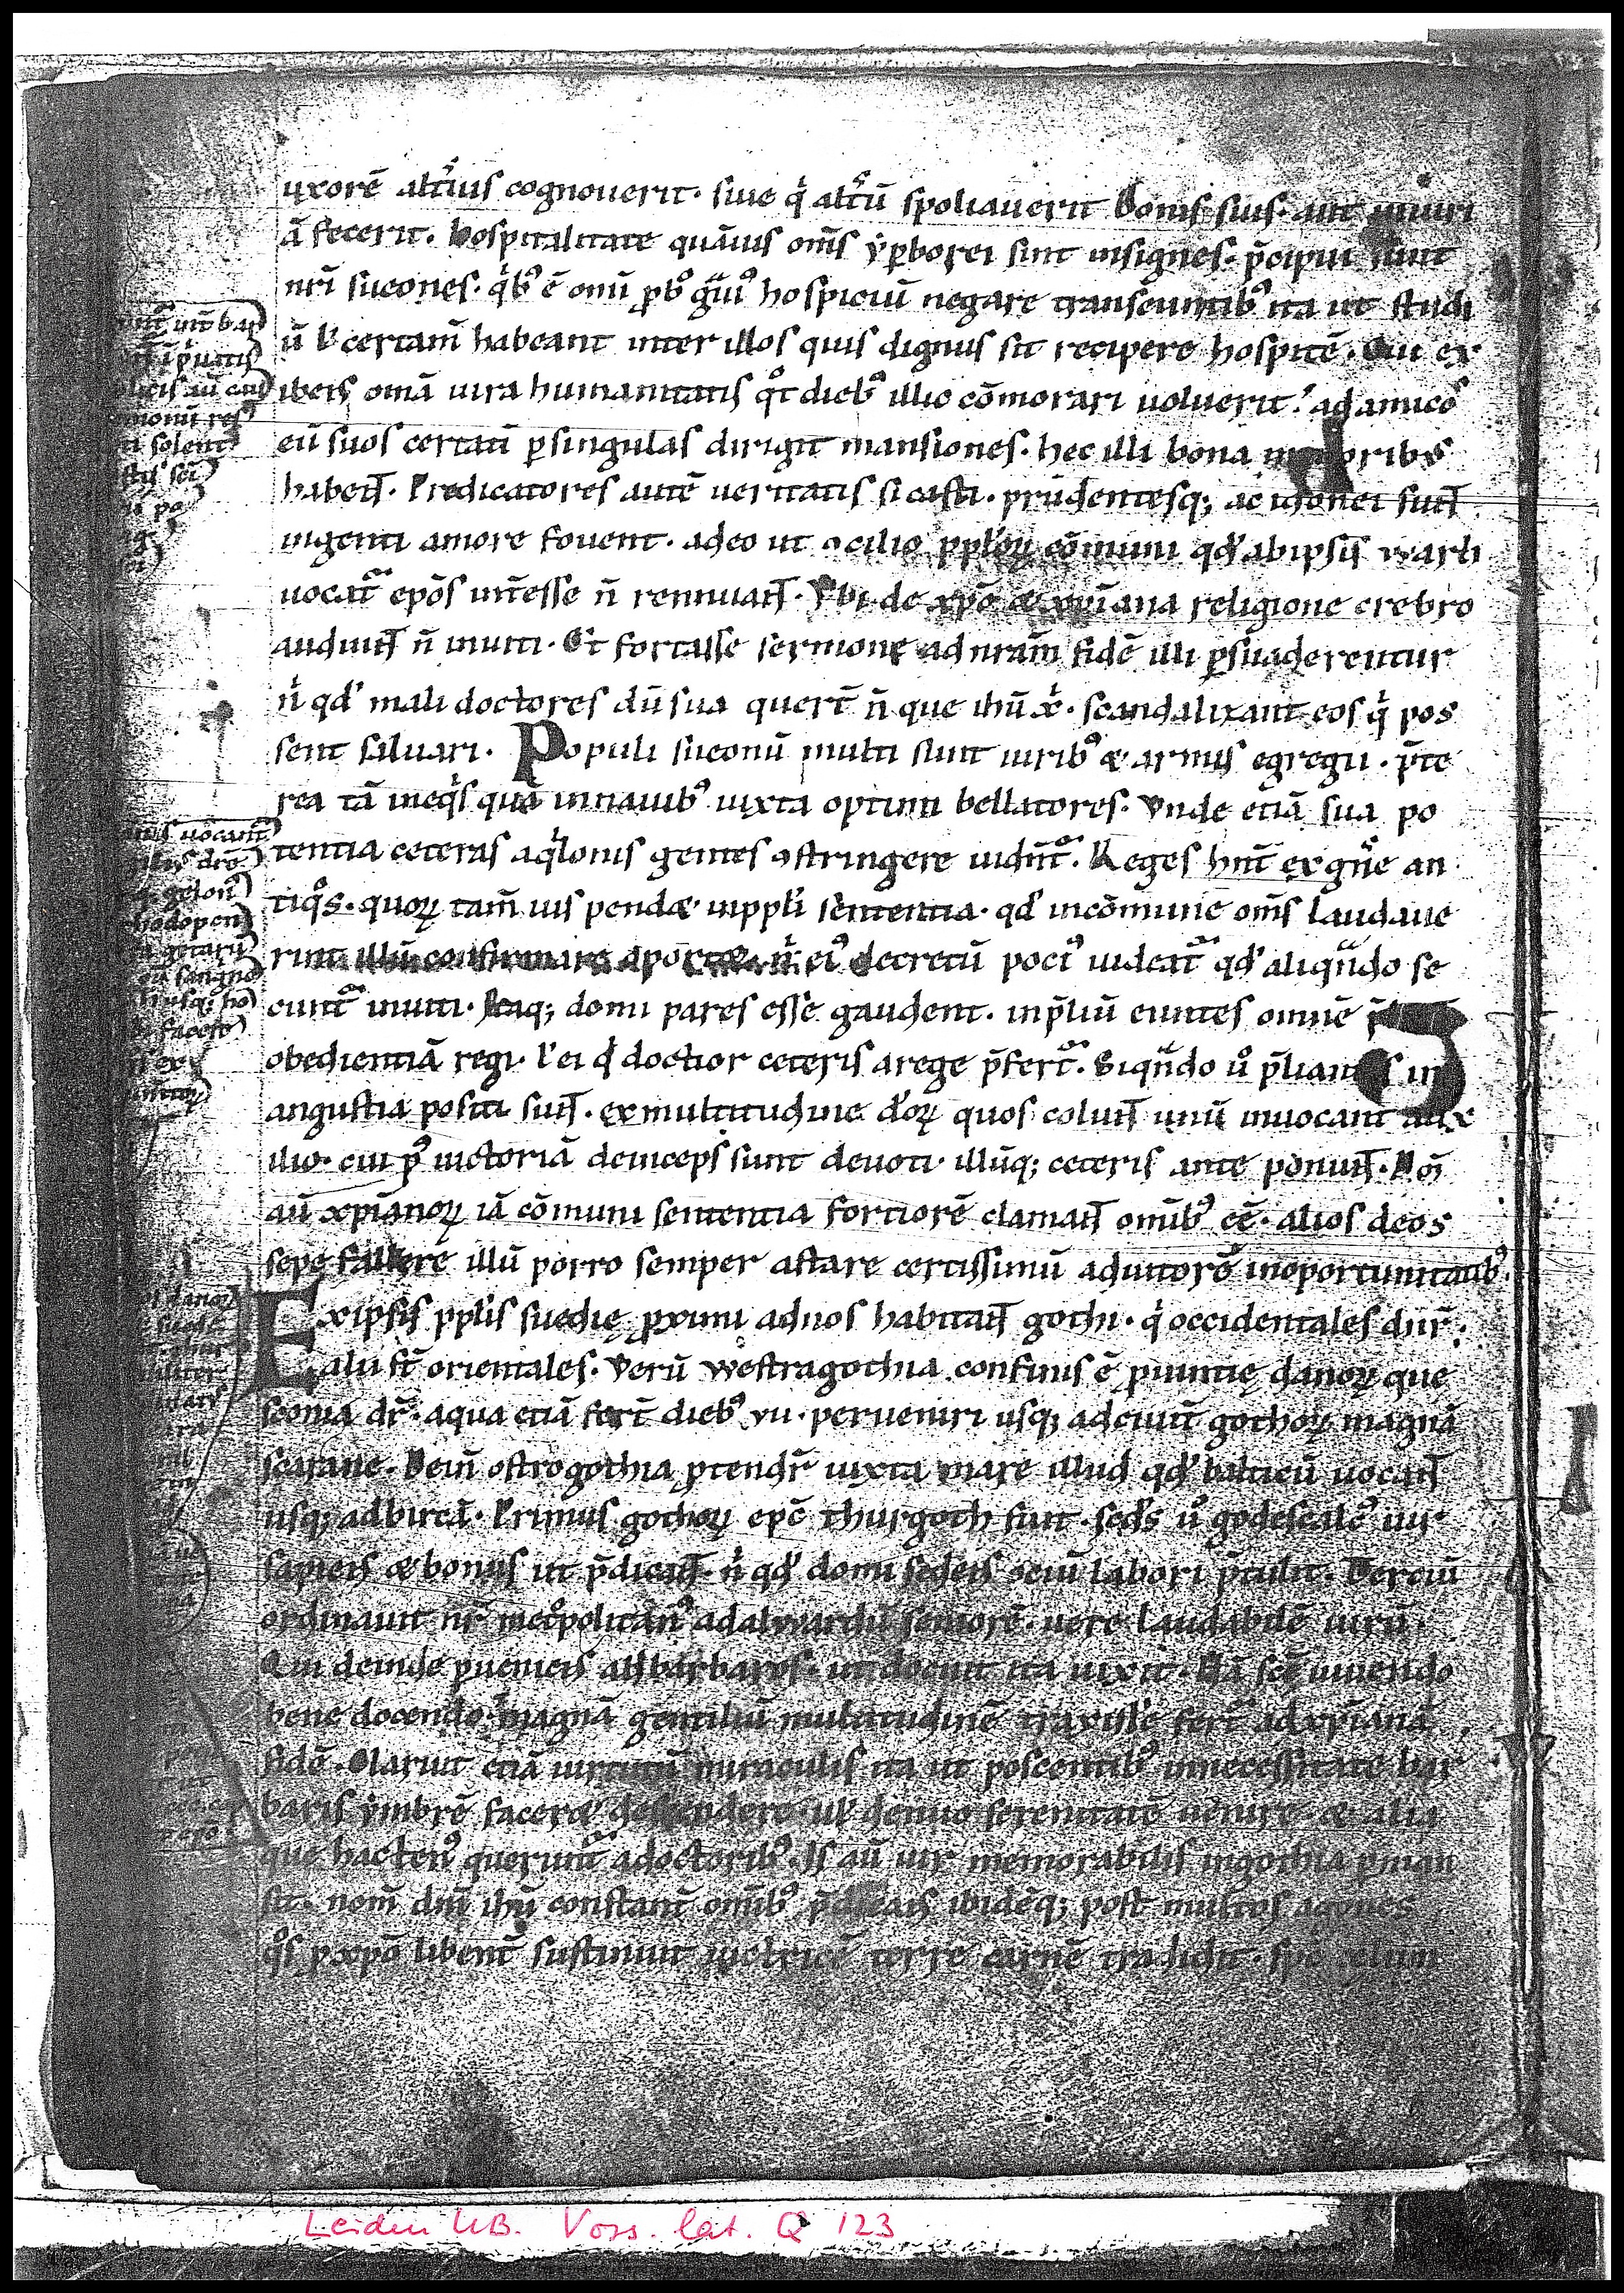 uxorē altĩus cognouerit. siue q̓ altũ spoliauerit bonis suis. aut iniuri
ā fecerit. hospitalitate quāuis om̄s yꝑborei sint insignes. p̄cipui sunt
nr̄i sueones. q̓bꝰ ē omī ꝓbꝰ g̃uiꝰ hospiciū negare transeuntibꝰ ita ut studi
ū ł certam̄ habeant inter illos quis dignus sit recipere hospitē. Cui ex
ibens omīa iura humanitatis qͦt diebꝰ illic cōmorari uoluerit. ad amicos
eū suos certatī ꝑ singulas dirigit mansiones. hec illi bona in moribꝰ
habent. Predicatores autē ueritatis si casti. prudentesq; ac idonei sunt
ingenti amore fouent. adeo ut ꝯcilio ppl̓oꝝ cōmuni qd̓ ab ipsis warh
uocat̃ ep̄os int̄esse n̄ rennuant. Vbi de xp̄o & xp̄iana religione crebro
audiunt n̄ inuiti. Et fortasse sermone ad nr̄am fidē illi ꝑsuaderentur
n̓ qd̓ mali doctores dū sua quert̄ n̄ que ih̄u x̓. scandalizant eos q̓ pos
sent saluari. Populi sueonū multi sunt uiribꝰ & armis egregii. p̄te
rea tā in eq̓s quā in nauibꝰ iuxta optimi bellatores. Vnde etiā sua po
tentia ceteras aq̓lonis gentes ꝯstringere uidn̄t̃. Reges hn̄t ex gn̄e an
tiqͦs. quoꝝ tam̄ uis pendæ in ppl̓i sententia. qd̓ in cōmune om̄s laudaue
rint illū confirmare oportæ. n̓ eiꝰ decretū pociꝰ uideat̃ qd̓ aliqn̄do se
cunt̃ inuiti. Itaq; domi pares esse gaudent. in p̄liū euntes omnē p̄
obedientiā regi. ł ei q̓ doctior ceteris a rege p̄fert̃. Siqn̄do uͦ p̄liantes in
angustia positi sunt. ex multitudine d̓oꝝ quos colunt unū inuocant aux
ilio. cui pꝰ uictoriā deinceps sunt deuoti. illūq; ceteris ante ponunt. Dm̄
aū xp̄ianoꝝ iā cōmuni sententia fortiorē clamant omībꝰ eē. alios deos
sepe fallere illū porro semper astare certissimū adiutorē in oportunitatibꝰ.
Ex ipsis ppl̓is suedię ꝓximi ad nos habitant gothi. q̓ occidentales dn̄r.
alii st̄ orientales. Verū westragothia confinis ē ꝓuintię danoꝝ que
sconia dr̄. a qua etiā fert̄ diebꝰ vii. perueniri usq; ad ciuit̄ gothoꝝ magnā
scarane. Dein̄ ostrogothia ꝓtendr̄ iuxta mare illud qd̓ balticū uocant
usq; ad bircā. Primus gothoꝝ ep̄c thurgoth fuit. sed̓s uͦ godescalcꝰ uir
sapiens & bonus ut p̄dicant. n̓ qd̓ domi sedens ociū labori p̄tulit. Terciū
ordinauit nr̄ met̓politanꝰ adalwardū seniorē. uere laudabilē uirū.
Qui deinde ꝑueniens ad barbaros. ut docuit ita uixit. Nā sc̄e uiuendo
bene docendo. magnā gentiliū multitudinē traxisse fert̃ ad xp̄ianā
fidē. Claruit etiā uirtutū miraculis ita ut poscentibꝰ in necessitate bar
baris ymbrē faceræ descendere. ul̓ denuo serenitatē uenire. & alia
que hactenꝰ querunt̃ a doctoribꝰ. Is aū uir memorabilis in gothia ꝑman
sit. nom̄ dn̄i ih̄u constant̄ omībꝰ p̄dicans ibidēq; post multos agones
qͦs ꝓ xp̄o libent̄ sustinuit uictricē terre carnē tradidit. spc̄ celum
Leiden UB. Voss. lat. Q 123